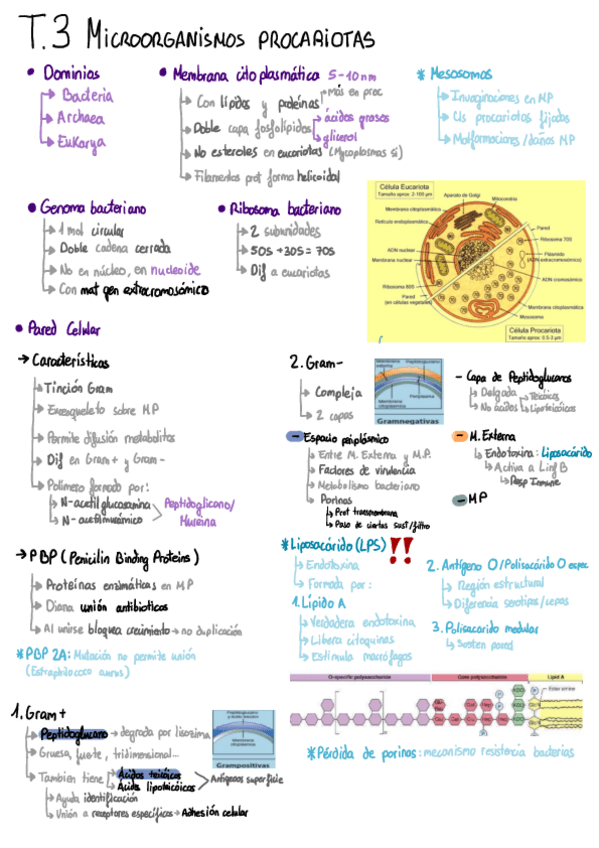 T.3 MICROORGANISMOS PROCARIOTAS
• Dominios
Bacteria
Archaea
Eukarya
• Membrana citoplasmática 5-10nm
Con lípidos y proteínas → Más en proc
Doble capa fosfolípidos → ácidos grasos
→ glicerol
No esteroles en eucariotas (Mycoplasmas sí)
Filamentos prot forma helicoidal
* Mesosomas
Invaginaciones en MP
procariotas fijados
Malformaciones/daños MP
• Genoma bacteriano
1 mol circular
Doble cadena cerrada
No en núcleo, en nucleoide
Con mat gen extracromosómico
• Ribosoma bacteriano
2 subunidades
50S + 30S = 70S
Dif a eucariotas
Célula Eucariota
Tamaño aprox: 2-100 µm
Aparato de Golgi
Mitocondria
Membrana citoplasmática
Retículo endoplasmático
ADN nuclear
Membrana nuclear
Ribosoma 80S
Pared
(en células vegetales)
Pared
Ribosoma 70S
Plásmido
(ADN extracromosómico)
ADN cromosómico
Membrana citoplasmática
Mesosoma
Célula Procariota
Tamaño aprox: 0.5-3 µm
• Pared Celular
→ Características
Tinción Gram
Exoesqueleto sobre MP
Permite difusión metabolitos
Dif en Gram + y Gram -
Polímero formado por:
N-acetilglucosamina
N-acetilmurámico
Peptidoglicano/
Mureína
→ PBP (Penicilin Binding Proteins)
Proteínas enzimáticas en MP
Diana unión antibióticos
Al unirse bloquea crecimiento → no duplicación
* PBP 2A: Mutación no permite unión
(Estafilococo aureus)
1. Gram+
Peptidoglucano → degrada por lisozima
Gruesa, fuerte, tridimensional...
También tiene
Ácidos teicóicos
Ácidos lipoteicóicos
Antígenos superficie
Ayuda identificación
Unión a receptores específicos → Adhesión celular
Membrana citoplasmática
Grampositivas
2. Gram-
Compleja
2 capas
Peptidoglucano
Periplasma
Membrana citoplasmática
Gramnegativas
- Capa de Peptidoglucanos
Delgada
No ácidos
Teicóicos
Lipoteicóicos
- Espacio periplásmico
Entre M. Externa y M.P.
Factores de virulencia
Metabolismo bacteriano
Porinas
Prot transmembrana
Paso de ciertas sust/filtro
- M. Externa
Endotoxina: Liposacárido
Activa a Linf B
Resp Inmune
- MP
* Liposacárido (LPS) !!
Endotoxina
Formada por:
1. Lípido A
Verdadera endotoxina
Libera citoquinas
Estimula macrófagos
2. Antígeno O/Polisacárido O espec
Región estructural
Diferencia serotipos/cepas
3. Polisacárido medular
Sosten pared
O-specific polysaccharide
Core polysaccharide
Lipid A
Ester amine
* Pérdida de porinas: mecanismo resistencia bacterias